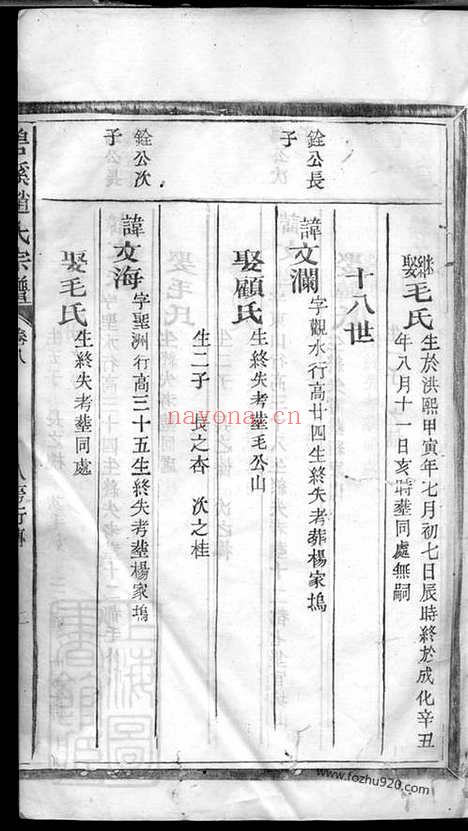 継娶毛氏 生於洪熙甲寅年七月初七日辰時終於成化辛丑
年八月十一日亥時塟同處無嗣
十八世
銓公長
子
諱文瀾 字觀水行高廿四生終失考葬楊家塢
娶顧氏 生終失考塟毛公山
生二子 長之杏 次之桂
銓公次
子
諱文海 字聖洲行高三十五生終失考塟楊家塢
娶毛氏 生終失考塟同處
溪趙氏宗譜
卷八
nayona.cn
www.fozhu920.com